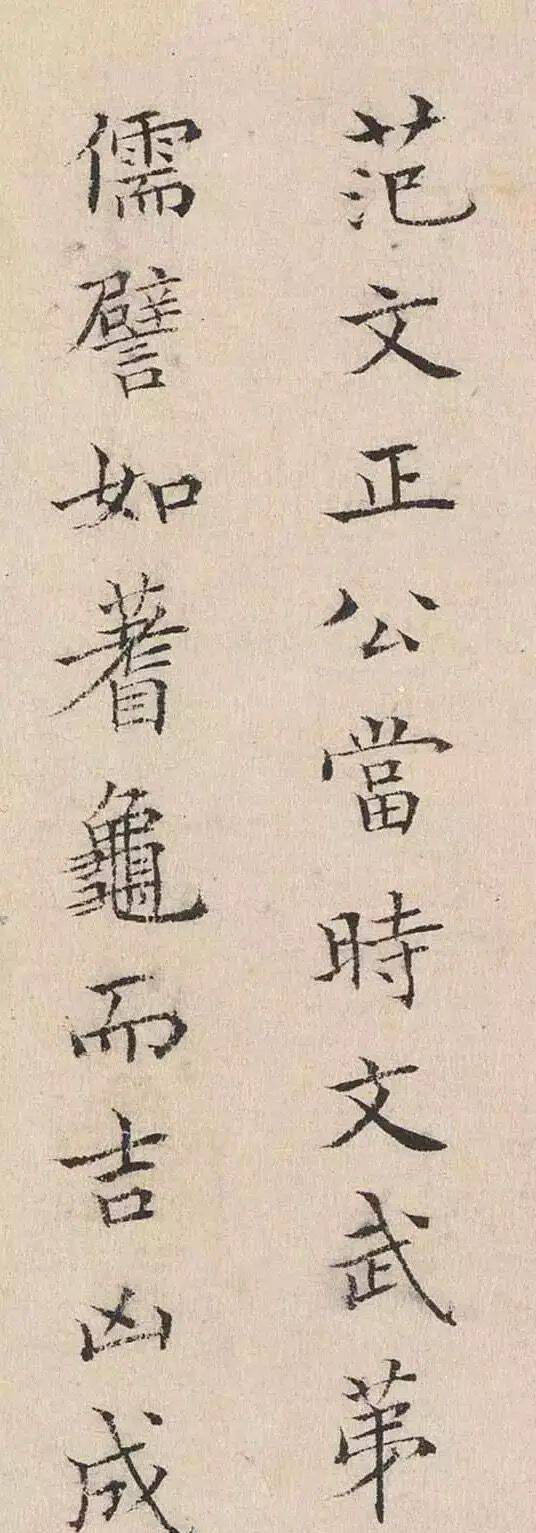 范文正公當時文武第
儒譬如蓍龜而吉凶成